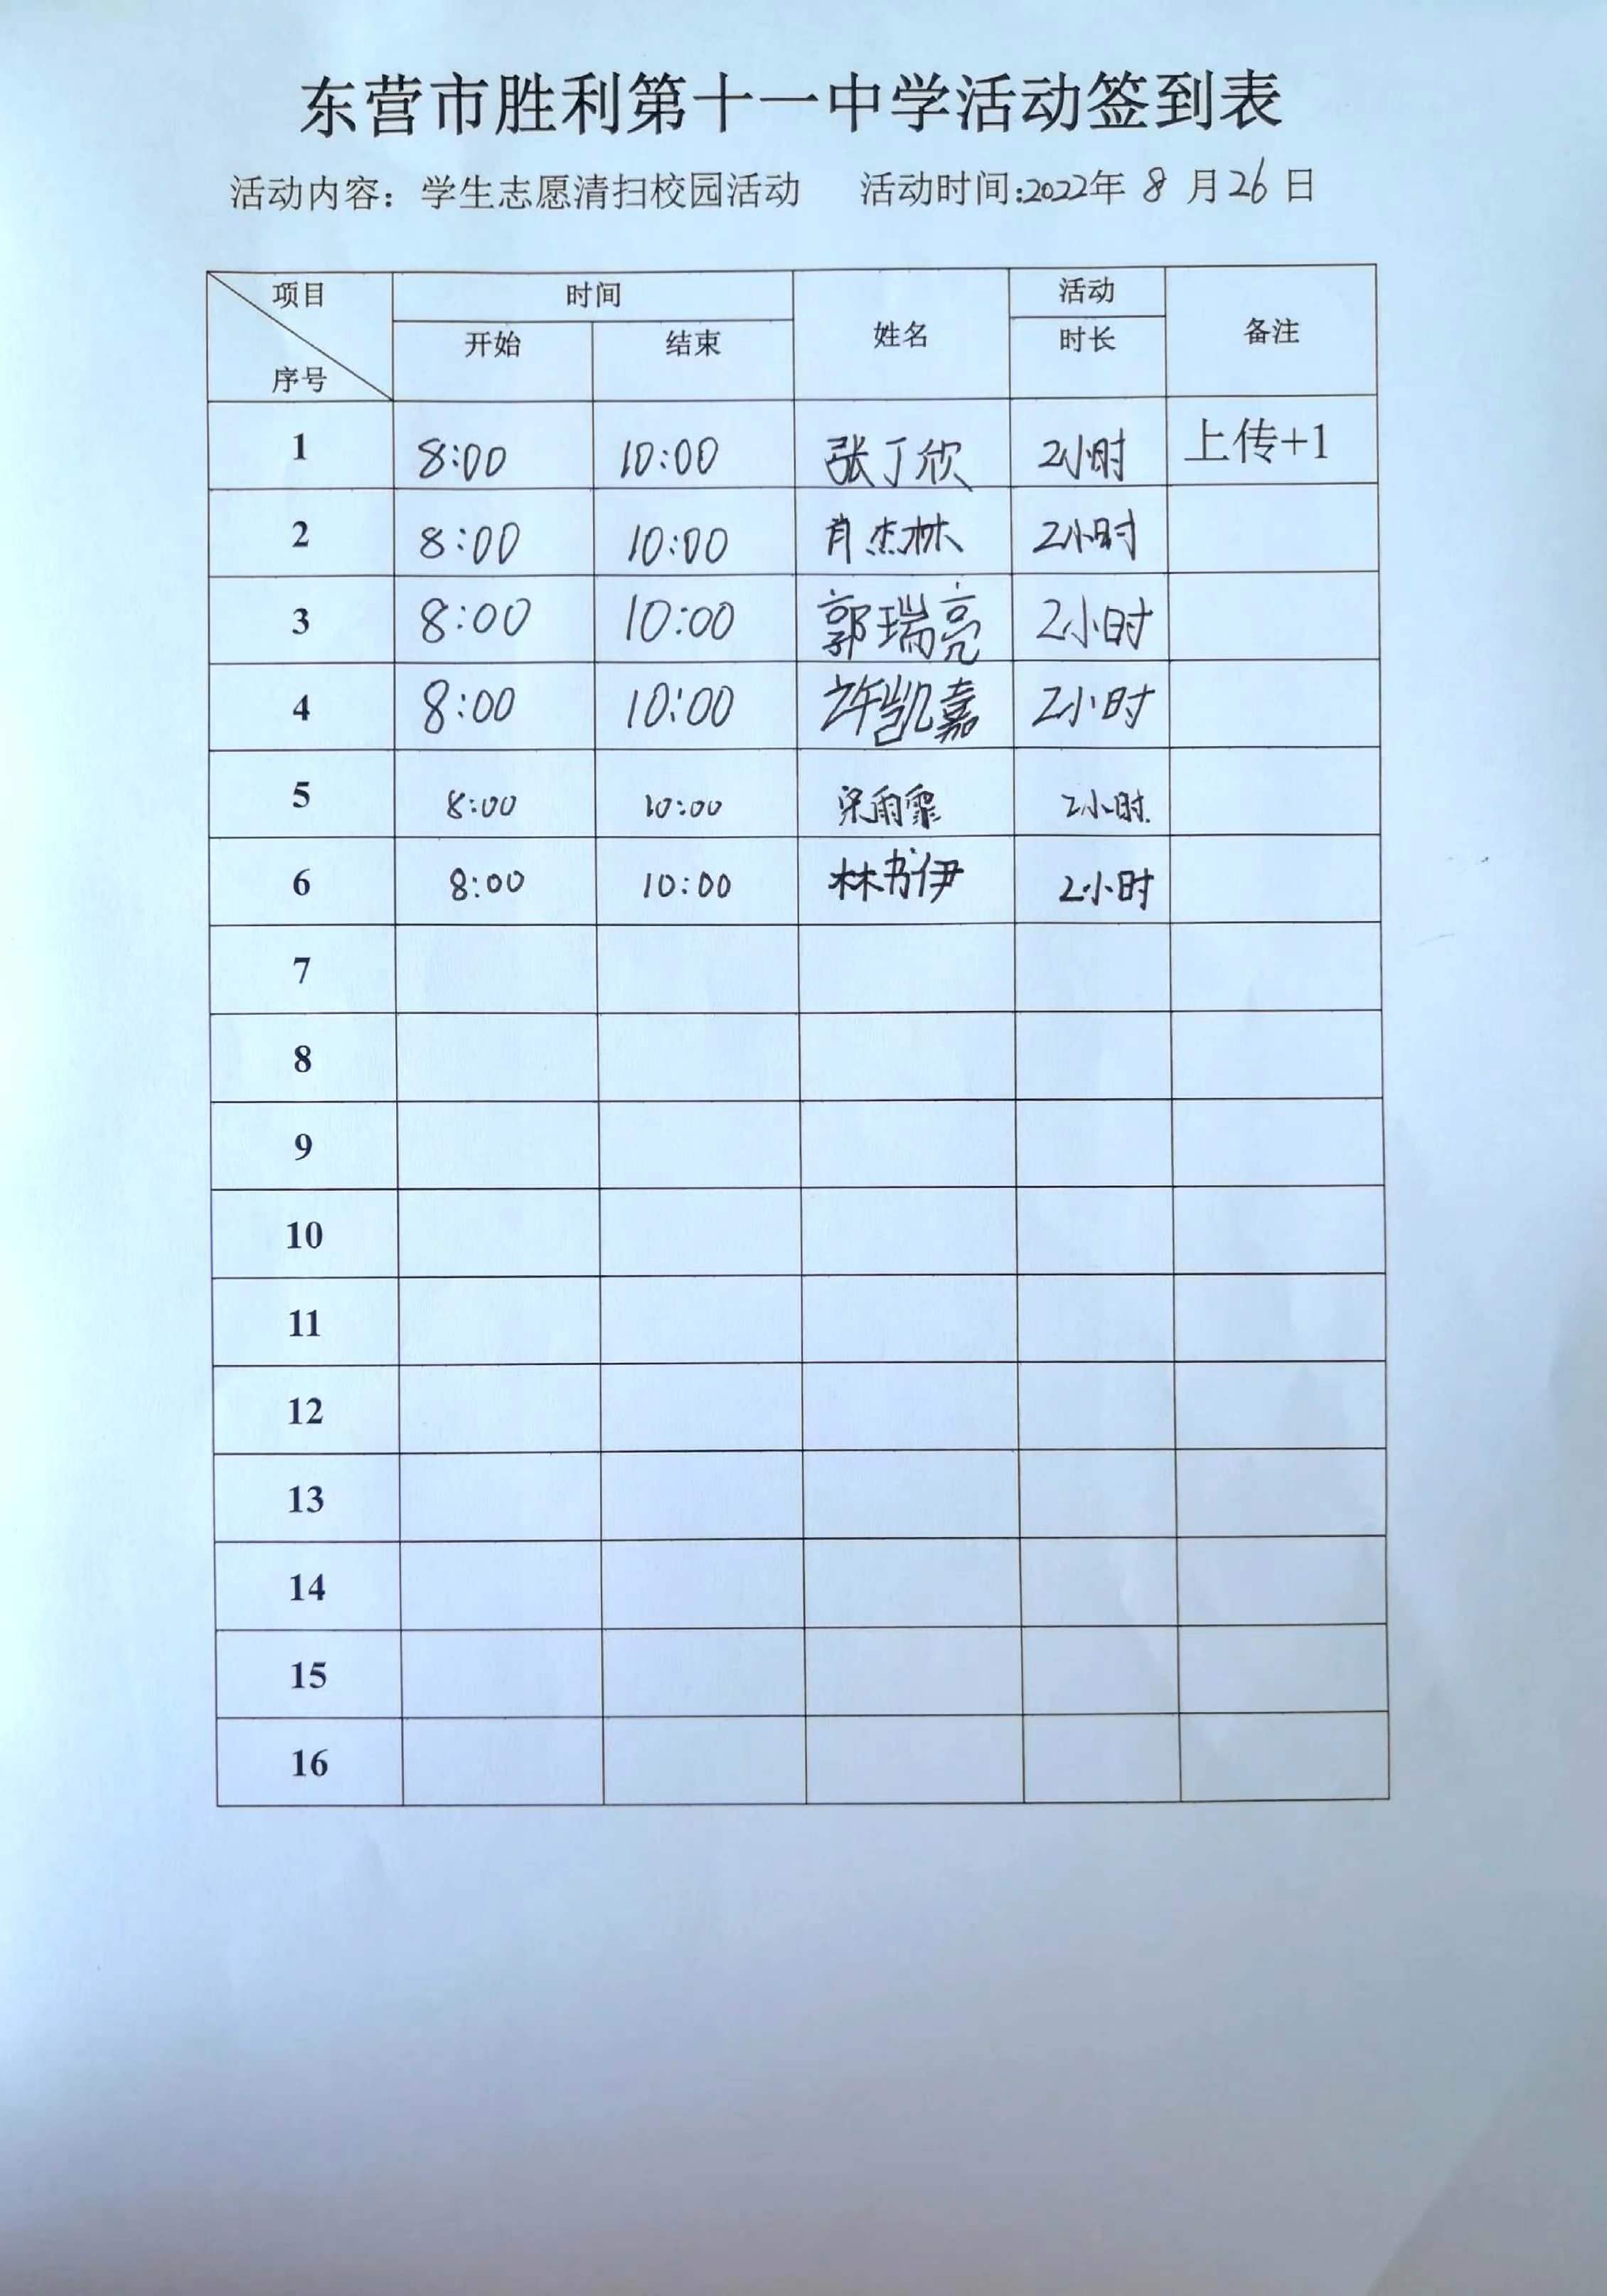 东营市胜利第十一中学活动签到表
活动内容：学生志愿清扫校园活动 活动时间:2022年 8 月26日
项目 时间 姓名 活动 备注
序号 开始 结束 时长
1 8:00 10:00 张丁欣 2小时 上传+1
2 8:00 10:00 肖杰林 2小时
3 8:00 10:00 郭瑞亮 2小时
4 8:00 10:00 许凯嘉 2小时
5 8:00 10:00 2小时.
6 8:00 10:00 林书伊 2小时
7
8
9
10
11
12
13
14
15
16